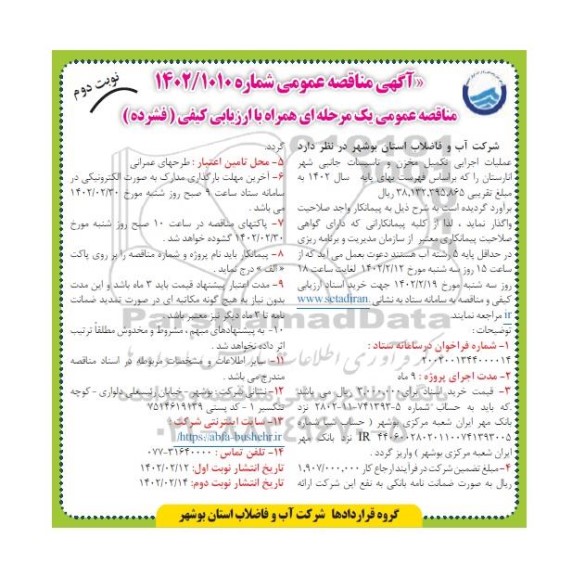 نوبت دوم
«آگهی مناقصه عمومی شماره ۱۴۰۲/۱۰۱۰
مناقصه عمومی یک مرحله ای همراه با ارزیابی کیفی (فشرده)
شرکت آب و فاضلاب استان بوشهر در نظر دارد
عملیات اجرایی تکمیل مخزن و تاسیسات جانبی شهر
انارستان را که براساس فهرست بهای پایه سال ۱۴۰۲ به
مبلغ تقریبی ۳۸,۱۳۲,۳۹۵,۸۶۵ ریال
برآورد گردیده است به شرح ذیل به پیمانکار واجد صلاحیت
واگذار نماید ، لذا از کلیه پیمانکارانی که دارای گواهی
صلاحیت پیمانکاری معتبر از سازمان مدیریت و برنامه ریزی
در حداقل پایه ۵ رشته آب هستند دعوت بعمل می آید که از
ساعت ۱۵ روز سه شنبه مورخ ۱۴۰۲/۲/۱۲ لغایت ساعت ۱۸
روز سه شنبه مورخ ۱۴۰۲/۲/۱۹ جهت خرید اسناد ارزیابی
کیفی و مناقصه به سامانه ستاد به نشانی www.setadiran.
ir مراجعه نمایند.
توضیحات :
۱- شماره فراخوان در سامانه ستاد :
۲۰۰۲۰۰۱۳۴۴۰۰۰۰۱۴
۲- مدت اجرای پروژه : ۹ ماه
۳- قیمت خرید اسناد برای ۳۰۰۰,۰۰۰ ریال می باشد
که باید به حساب شماره ۵-۷۴۱۳۹۳-۱۱-۲۸۰۲ نزد
بانک مهر ایران شعبه مرکزی بوشهر ( حساب شبا شماره
IR ۴۴۰۶۰۰۲۸۰۲۰۱۱۰۰۷۴۱۳۹۳۰۰۵ نزد بانک مهر
ایران شعبه مرکزی بوشهر ) واریز گردد .
۴- مبلغ تضمین شرکت در فرآیند ارجاع کار ۱,۹۰۷,۰۰۰,۰۰۰
ریال به صورت ضمانت نامه بانکی به نفع این شرکت ارائه
گردد.
۵- محل تامین اعتبار : طرحهای عمرانی
۶- آخرین مهلت بارگذاری مدارک به صورت الکترونیکی در
سامانه ستاد ساعت ۹ صبح روز شنبه مورخ ۱۴۰۲/۰۲/۳۰
می باشد .
۷- پاکتهای مناقصه در ساعت ۱۰ صبح روز شنبه مورخ
۱۴۰۲/۰۲/۳۰ گشوده خواهد شد .
۸- پیمانکار باید نام پروژه و شماره مناقصه را بر روی پاکت
« الف » درج نماید .
۹- مدت اعتبار پیشنهاد قیمت باید ۳ ماه باشد و این مدت
بدون نیاز به هیچ گونه مکاتبه ای در صورت تمدید ضمانت
نامه تا ۲ ماه دیگر نیز معتبر باشد.
۱۰- به پیشنهادهای مبهم ، مشروط و مخدوش مطلقاً ترتیب
اثر داده نخواهد شد .
۱۱- سایر اطلاعات و مشخصات مربوطه در اسناد مناقصه
مندرج می باشد .
۱۲- نشانی شرکت : بوشهر - خیابان رئیسعلی دلواری - کوچه
تنگسیر ۱ - کد پستی ۷۵۱۴۶۱۹۱۳۹
۱۳- سایت اینترنتی شرکت :
https://abfa-bushehr.ir/
۱۴- تلفن تماس : ۳۱۶۴۰۰۰۰-۰۷۷
تاریخ انتشار نوبت اول: ۱۴۰۲/۰۲/۱۲
تاریخ انتشار نوبت دوم: ۱۴۰۲/۰۲/۱۴
گروه قراردادها شرکت آب و فاضلاب استان بوشهر